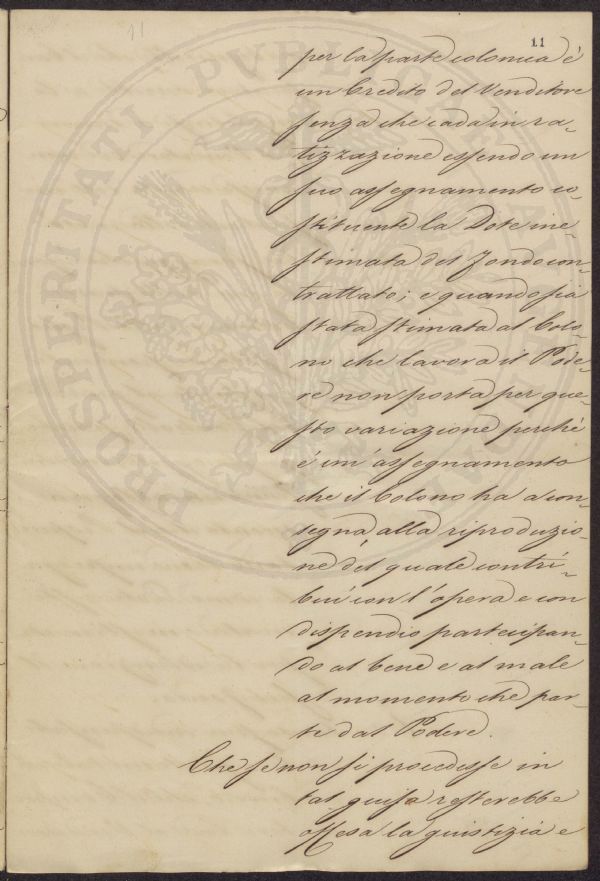 11
11
per la parte colonica é
un Credito del Venditore
senza che cada in ra-
tizzazione essendo un
suo assegnamento co-
stituente la Dote ine-
stimata del Fondo con-
trattato; e quando sia
stata stimata al Colo-
no che lavora il Pode-
re non porta per que-
sto variazione perché
é un' assegnamento
che il Colono ha a con-
segna alla riproduzio-
ne del quale contri-
buí con l'opera e con
dispendio partecipan-
do al bene e al male
al momento che par-
te dal Podere.
Che se non si procedesse in
tal guisa resterebbe
offesa la giustizia e
PROSPERITATI PVBLICAE